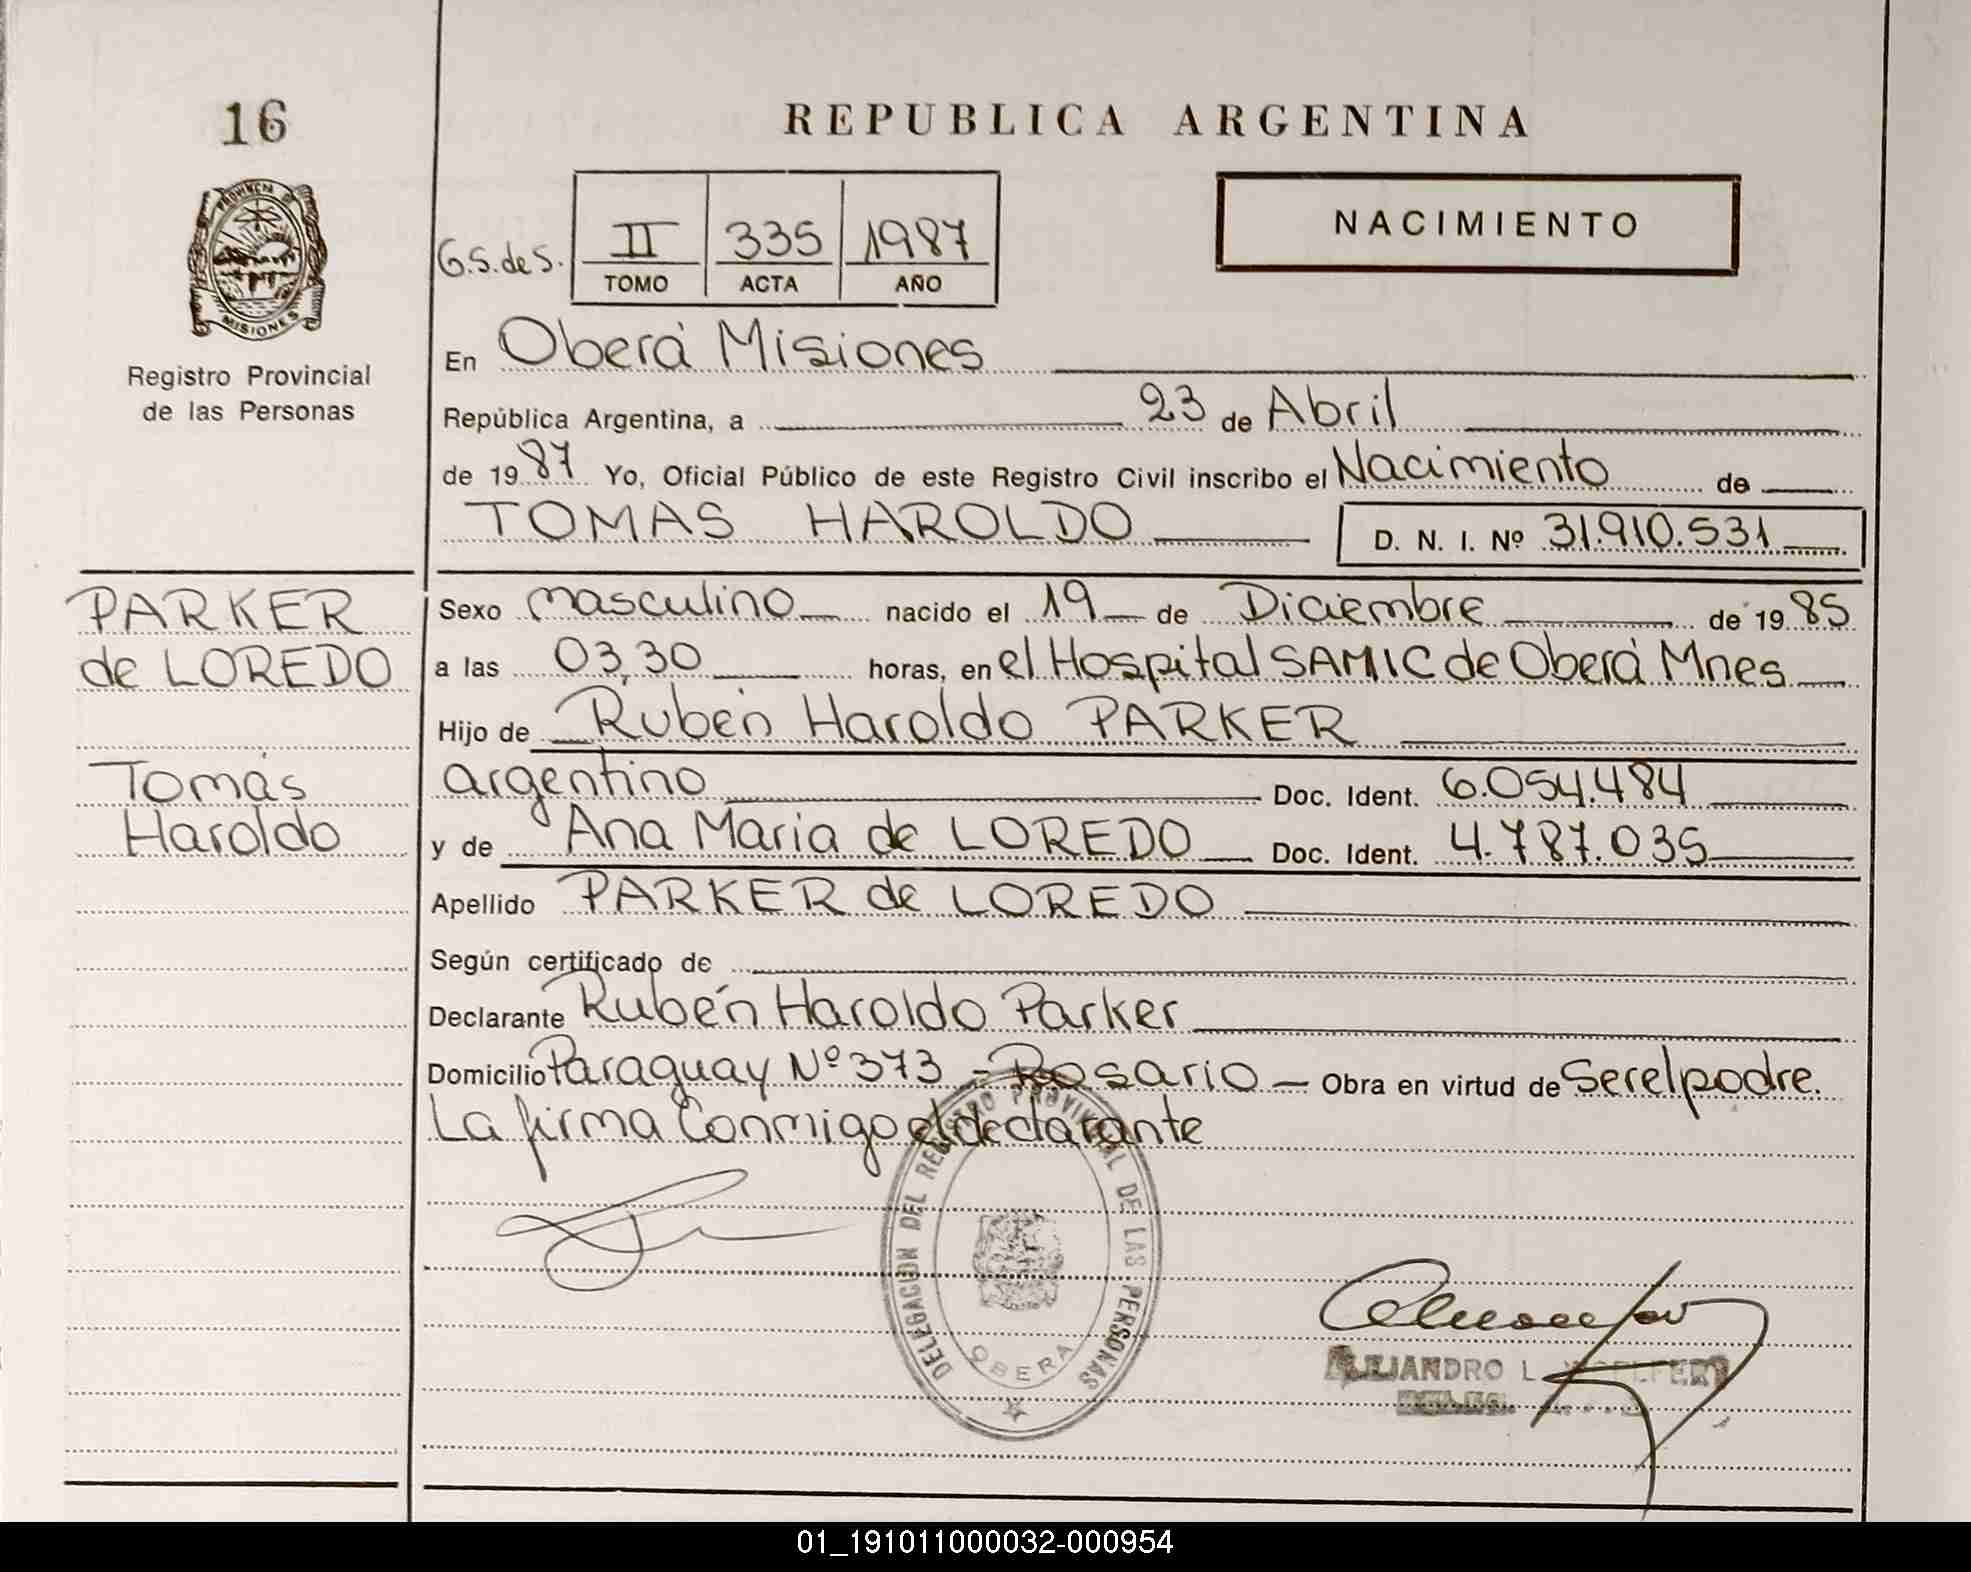 16
REPUBLICA ARGENTINA
PROVINCIA DE
MISIONES
Registro Provincial
de las Personas
G.S.deS.
II 335 1987
TOMO ACTA AÑO
NACIMIENTO
En Oberá Misiones
República Argentina, a 23 de Abril
de 1987 Yo, Oficial Público de este Registro Civil inscribo el Nacimiento de
TOMAS HAROLDO D. N. I. Nº 31.910.531
PARKER
de LOREDO
Tomás
Haroldo
Sexo masculino nacido el 19 de Diciembre de 1985
a las 03,30 horas, en el Hospital SAMIC de Oberá Mnes
Hijo de Rubén Haroldo PARKER
argentino Doc. Ident. 6.054.484
y de Ana Maria de LOREDO Doc. Ident. 4.787.035
Apellido PARKER de LOREDO
Según certificado de
Declarante Rubén Haroldo Parker
Domicilio Paraguay Nº 373 - Rosario - Obra en virtud de Ser el padre.
La firma Conmigo el declarante
DELEGACION DEL REGISTRO PROVINCIAL DE LAS PERSONAS
OBERA
ALEJANDRO L.
01_191011000032-000954